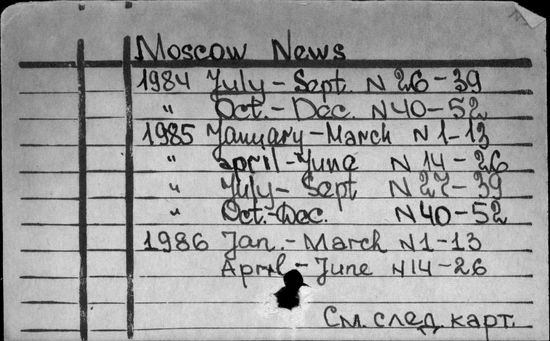 Moscow News
1984 July - Sept. N 26-39
" Oct.- Dec. N 40-52
1985 January - March N 1-13
" April - June N 14-26
" July - Sept N 27-39
" Oct.-Dec. N 40-52
1986 Jan. - March N 1-13
April - June N 14-26
См. след. карт.